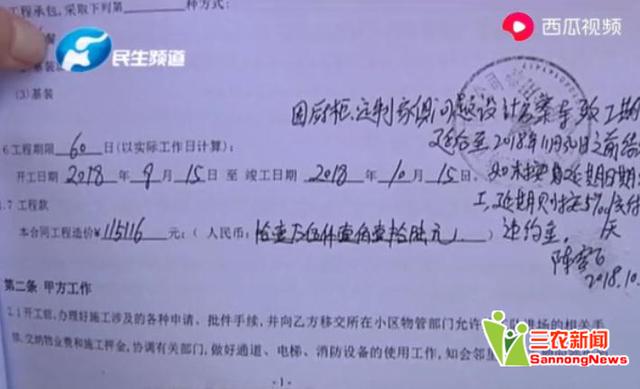 西瓜视频
民生频道
工程承包,采取下列第 种方式:
(3)基装
因厨柜、定制家俱问题设计方案导致工期
延后至2018年11月30日之前结
6工程期限 60 日(以实际工作日计算):
开工日期 2018 年 9 月 15 日 至 竣工日期 2018 年 10 月 15 日.
如未按 延期日期
工,延期则按570元/天
.7 工程款
本合同工程造价¥115116 元:( 人民币: 拾壹万伍仟壹佰壹拾陆元 )
违约金.
2018.10.
第二条 甲方工作
2.1开工前,办理好施工涉及的各种申请、批件手续,并向乙方移交所在小区物管部门允许 队进场的相关手
续,交纳物业费和施工押金,协调有关部门,做好通道、电梯、消防设备的使用工作,知会邻里
- 1 -
三农新闻
SannongNews.com